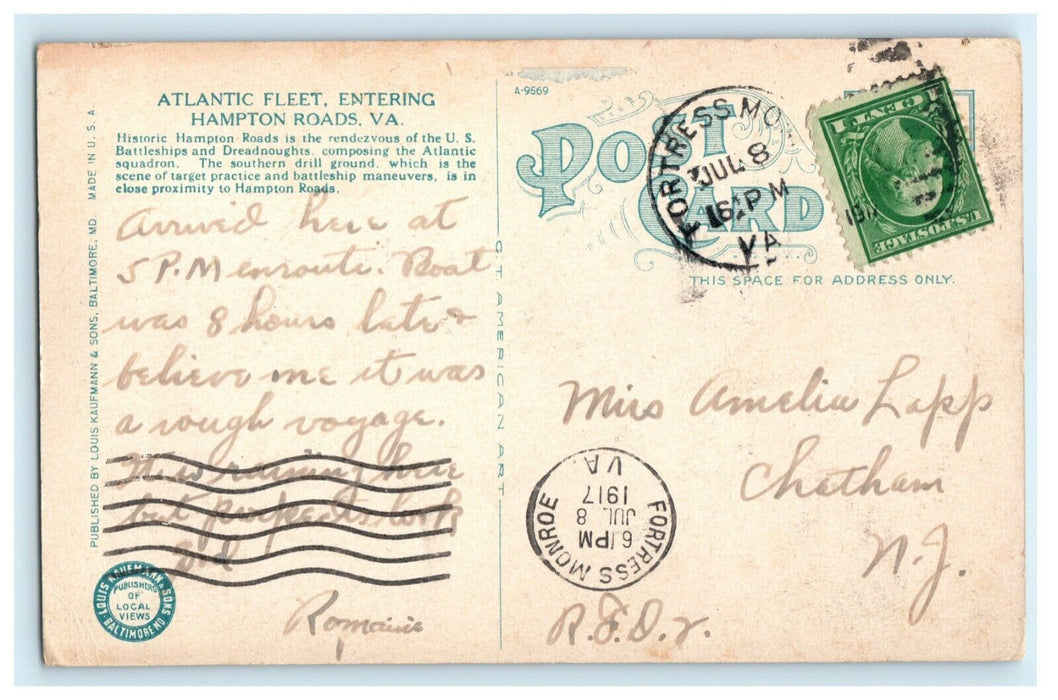 ATLANTIC FLEET, ENTERING
HAMPTON ROADS, VA.
Historic Hampton Roads is the rendezvous of the U. S.
Battleships and Dreadnoughts, composing the Atlantic
squadron. The southern drill ground, which is the
scene of target practice and battleship maneuvers, is in
close proximity to Hampton Roads.
Arrived here at
5 P.M enroute. Boat
was 8 hours late &
believe me it was
a rough voyage.
raining here
but
Romaine
PUBLISHED BY LOUIS KAUFMANN & SONS, BALTIMORE, MD. MADE IN U. S. A.
LOUIS KAUFMANN & SONS
BALTIMORE MD
PUBLISHERS
OF
LOCAL
VIEWS
C T AMERICAN ART
A-9569
POST
CARD
THIS SPACE FOR ADDRESS ONLY.
FORTRESS MO
JUL 8
6 PM
VA
U.S. POSTAGE
1 CENT 1
Miss Amelia Lapp
Chatham
N.J.
R.F.D.
FORTRESS MONROE
VA.
1917
JUL 8
6 PM